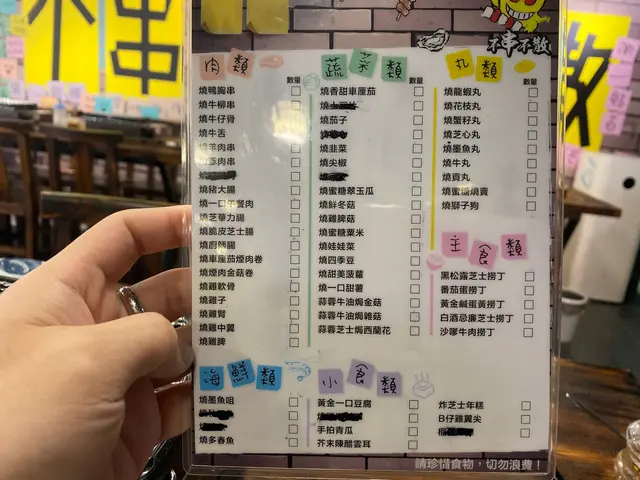 串
不串不散
肉類
數量
燒鴨胸串
燒牛柳串
燒牛仔骨
燒牛舌
燒羊肉串
肉串
燒豬大腸
燒一口午餐肉
燒芝華力腸
燒脆皮芝士腸
燒廚師腸
燒車厘茄煙肉卷
燒煙肉金菇卷
燒雞軟骨
燒雞子
燒雞腎
燒雞中翼
燒雞脾
蔬菜類
數量
燒香甜車厘茄
燒茄子
燒韭菜
燒尖椒
燒蜜糖翠玉瓜
燒鮮冬菇
燒雞脾菇
燒蜜糖粟米
燒娃娃菜
燒四季豆
燒甜美菠蘿
燒一口甜薯
蒜蓉牛油焗金菇
蒜蓉牛油焗雜菇
蒜蓉芝士焗西蘭花
丸類
數量
燒龍蝦丸
燒花枝丸
燒蟹籽丸
燒芝心丸
燒墨魚丸
燒牛丸
燒貢丸
燒蜜糖燒賣
燒獅子狗
主食類
黑松露芝士撈丁
番茄蛋撈丁
黃金鹹蛋黃撈丁
白酒忌廉芝士撈丁
沙嗲牛肉撈丁
海鮮類
燒墨魚咀
燒多春魚
小食類
黃金一口豆腐
手拍青瓜
芥末陳醋雲耳
炸芝士年糕
B仔雞翼尖
請珍惜食物，切勿浪費！